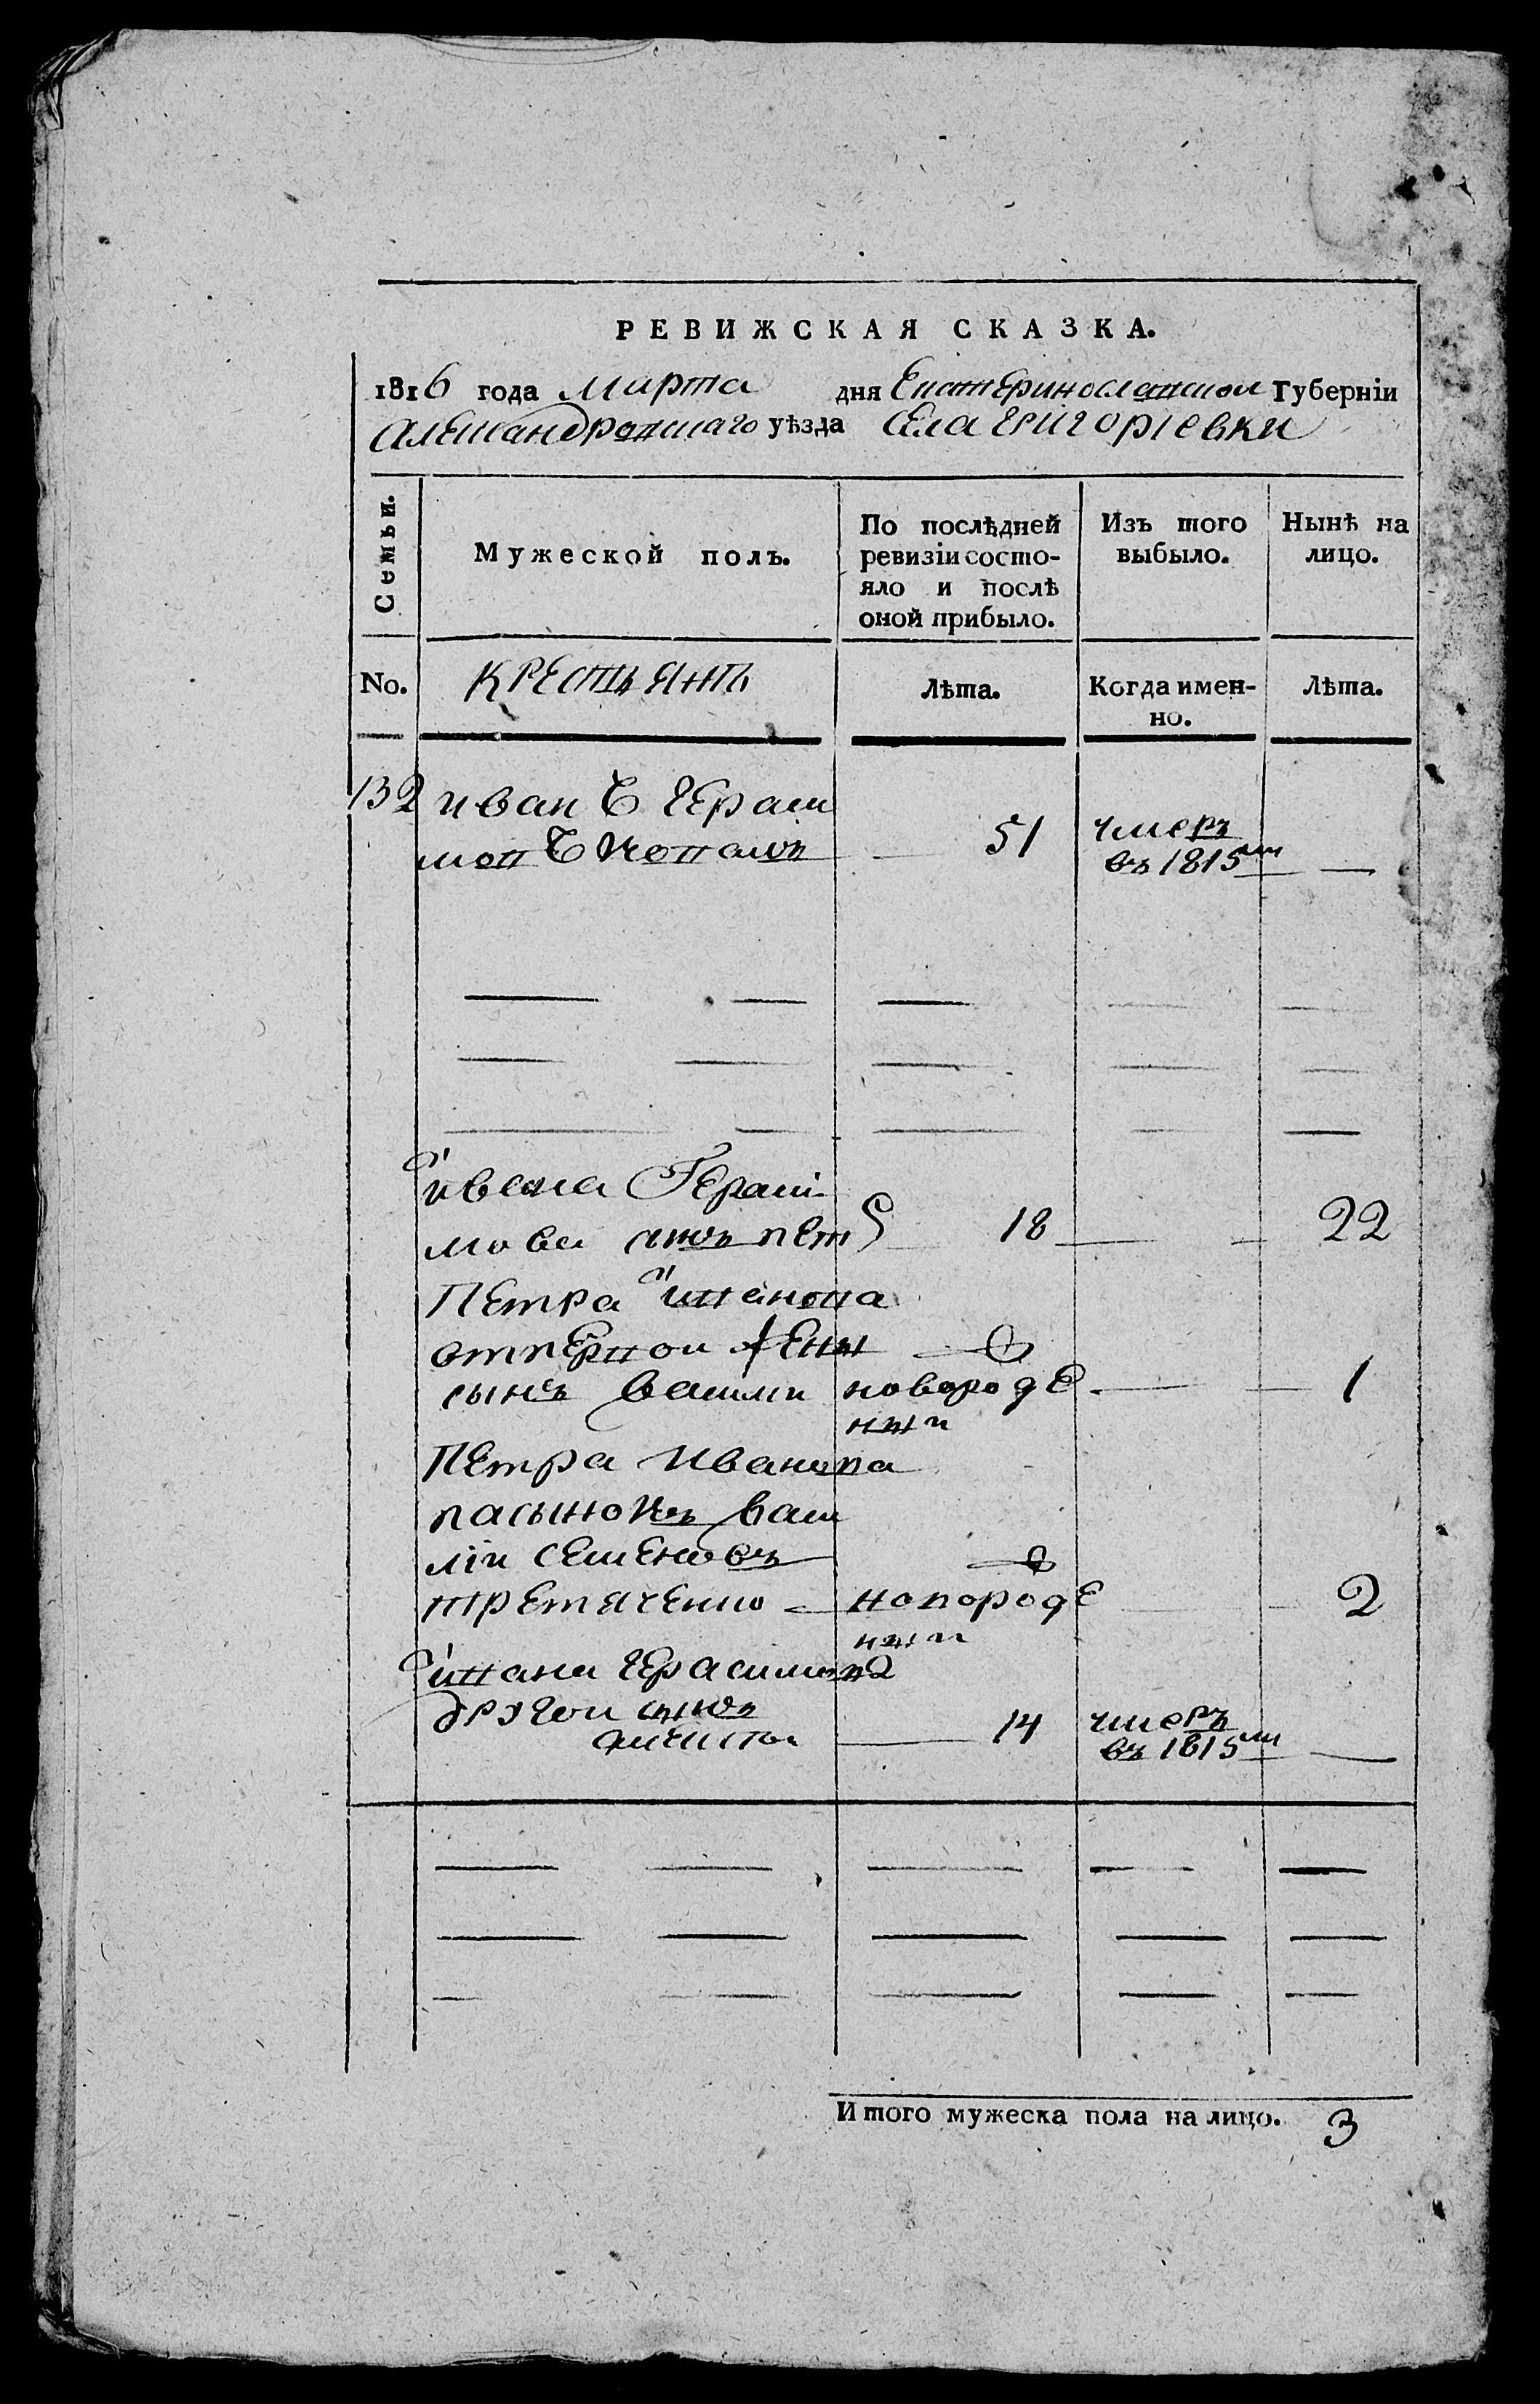 РЕВИЖСКАЯ СКАЗКА.
1816 года Марта дня Екатеринославской Губерніи
Александровскаго уѣзда Села Григоріевки
Семьи.
Мужеской полъ.
По послѣдней ревизіи состо-
яло и послѣ
оной прибыло.
Изъ того
выбыло.
Нынѣ на
лицо.
No.
КРЕСТЬЯНЪ
Лѣта.
Когда имен-
но.
Лѣта.
132 Иванъ Герасі
мовъ 51 умеръ
въ 1815мъ
Ивана Герасі-
мова сынъ Петръ 18 22
Петра Иванова
отпервой жены
сынъ Васили новороде 1
ныи
Петра Иванова
пасынокъ Васи
лій Семеновъ
Третяченко новороде 2
ныи
Ивана Герасимова
другой сынъ 14 умеръ
въ 1815мъ
Итого мужеска пола на лицо. 3